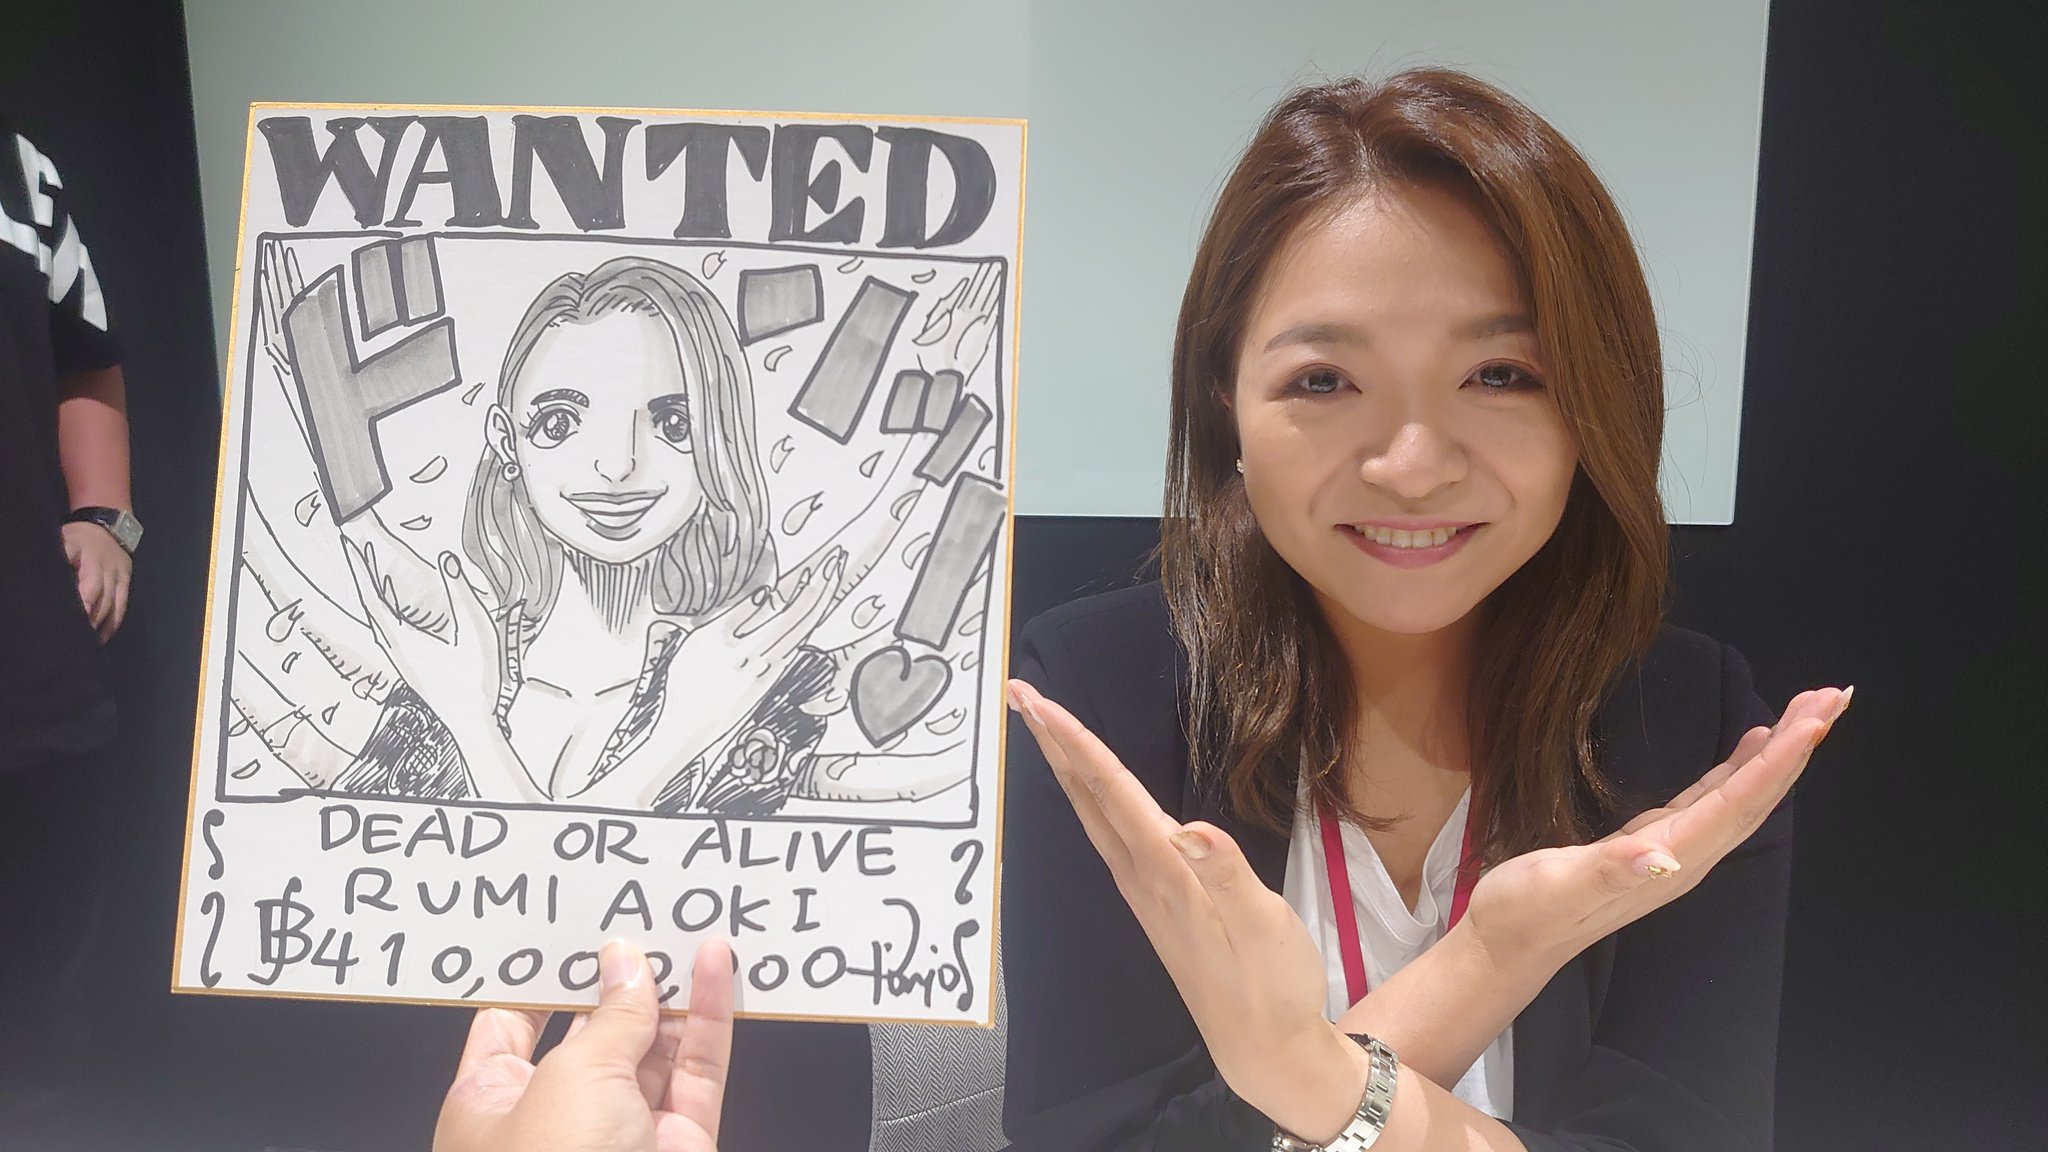 WANTED
ドーン!
DEAD OR ALIVE
RUMI AOKI
฿410,000,000